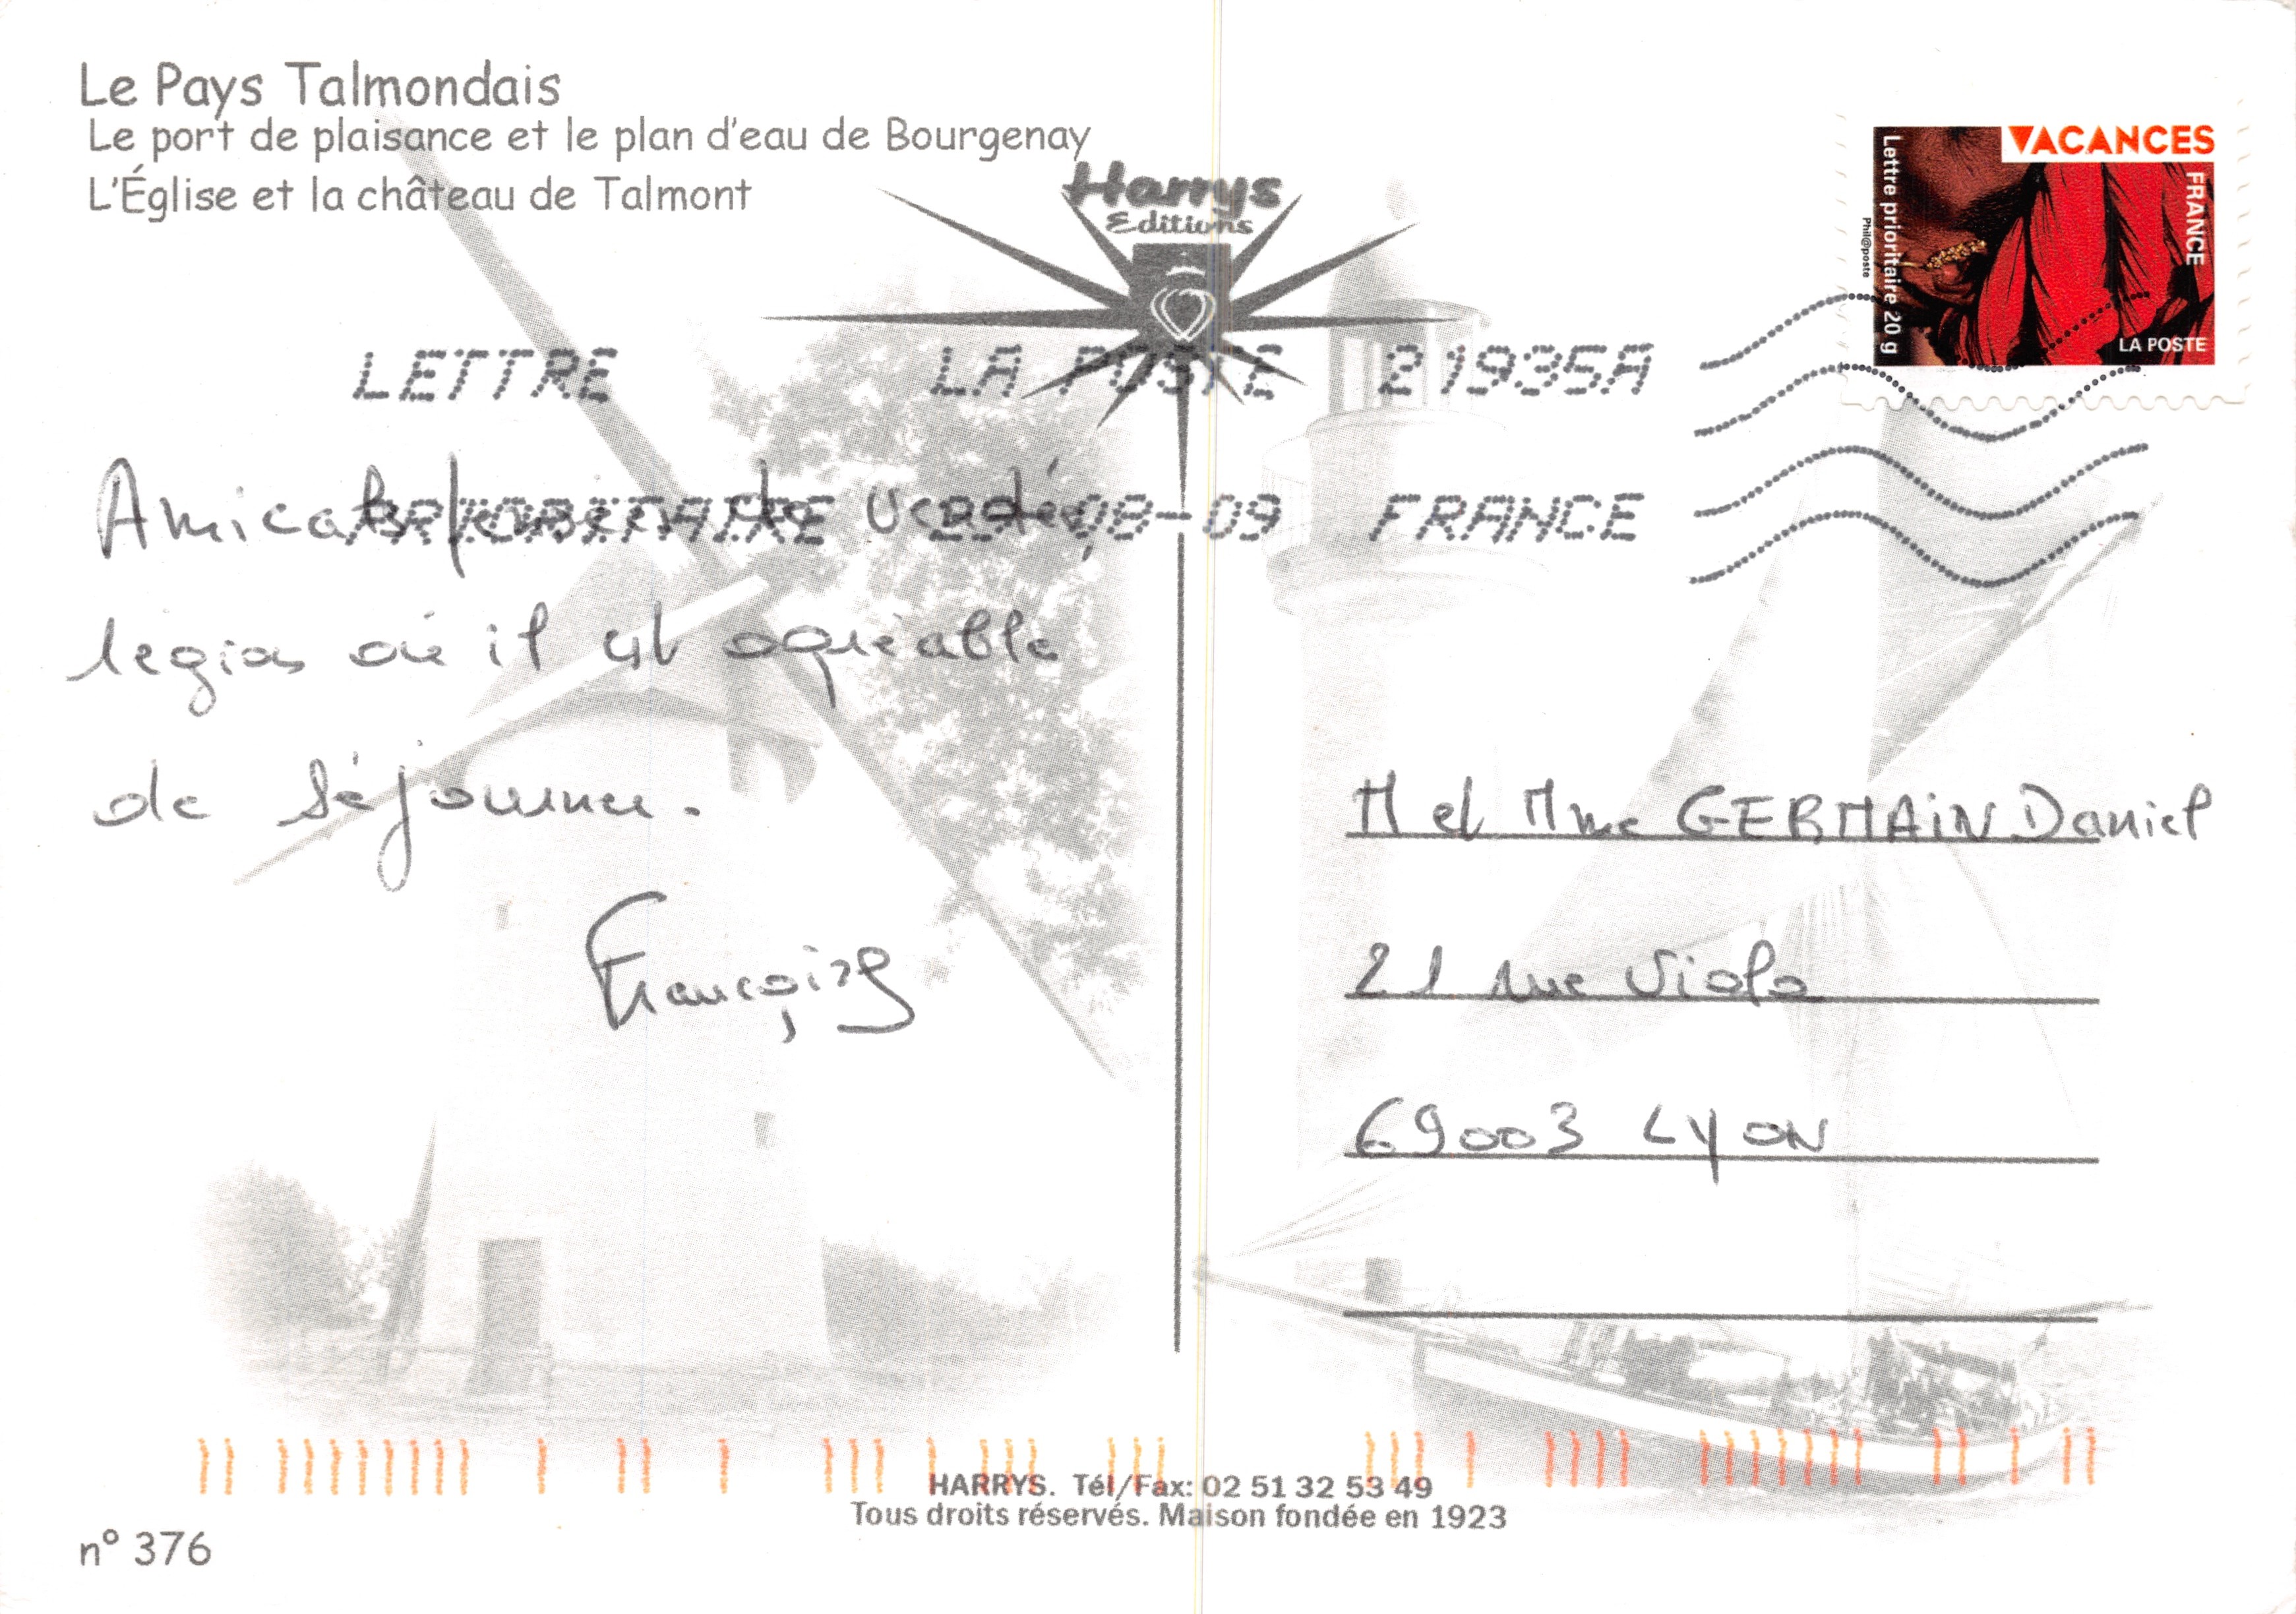 Le Pays Talmondais
Le port de plaisance et le plan d'eau de Bourgenay
L'Église et la château de Talmont
Harrys
Editions
VACANCES
FRANCE
Lettre prioritaire 20 g
Phil@poste
LA POSTE
LETTRE LA POSTE 21935A
PRIORITAIRE 08-09 FRANCE
Amicales pensées de Vendée,
région où il est agréable
de séjourner.
Françoise
M et Mme GERMAIN Daniel
21 rue Viala
69003 LYON
HARRYS. Tél/Fax: 02 51 32 53 49
Tous droits réservés. Maison fondée en 1923
n° 376